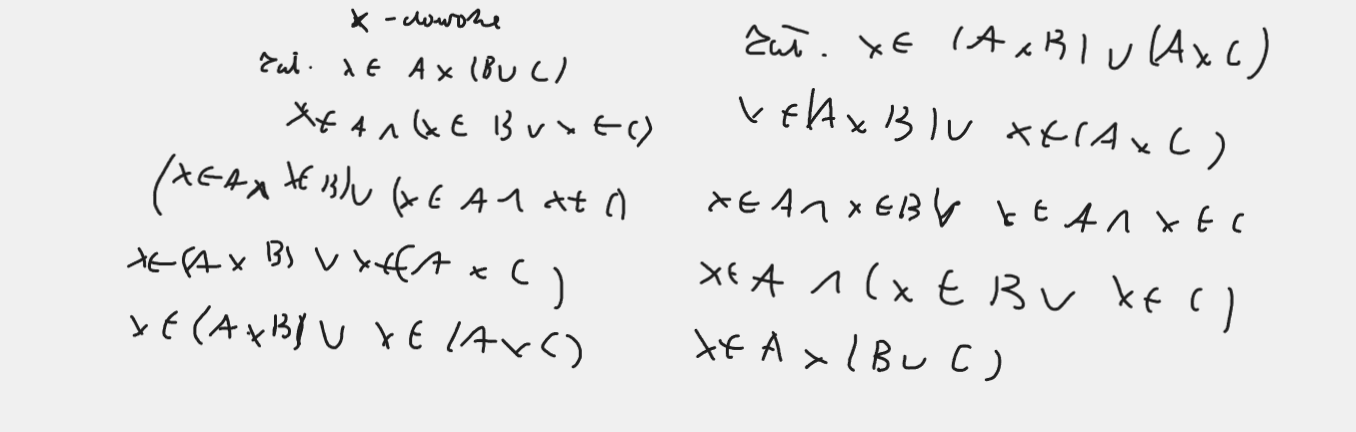 x - dowolne
zał. x ∈ A × (B ∪ C)
x ∈ A ∧ (x ∈ B ∨ x ∈ C)
(x ∈ A ∧ x ∈ B) ∪ (x ∈ A ∧ x ∈ C)
x ∈ (A × B) ∨ x ∈ (A × C)
x ∈ (A × B) ∪ x ∈ (A × C)
zał. x ∈ (A × B) ∪ (A × C)
x ∈ (A × B) ∪ x ∈ (A × C)
x ∈ A ∧ x ∈ B ∨ x ∈ A ∧ x ∈ C
x ∈ A ∧ (x ∈ B ∪ x ∈ C)
x ∈ A × (B ∪ C)